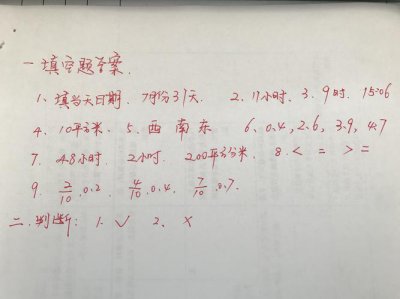 一 填空题答案.
1、填当天日期、7月份31天. 2、11小时、3、9时、15:06
4、10平方米、5、西 南 东 6、0.4, 2.6, 3.9, 4.7
7、48小时、2小时、200平方分米、8、< = > =
9、2/10、0.2、4/10、0.4、7/10、0.7.
二、判断: 1、✓ 2、×